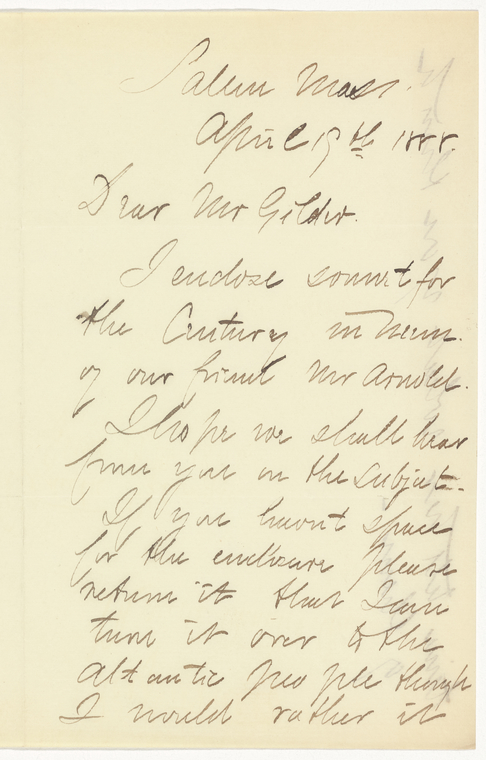 Salem Mass.
April 19th 1888.
Dear Mr Gilder.
I enclose sonnet for
the Century in mem.
of our friend Mr Arnold.
I hope we shall hear
from you on the subject.
If you havn't space
for the enclosure please
return it that I can
turn it over to the
Atlantic people though
I would rather it